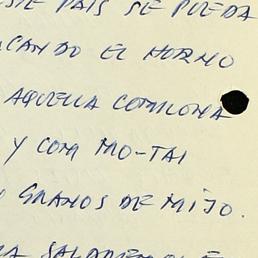 ESTE PAIS SE PUEDA
CANDO EL HORNO
AQUELLA COMILONA
Y CON MO-TAI
GRANOS DE MIJO.